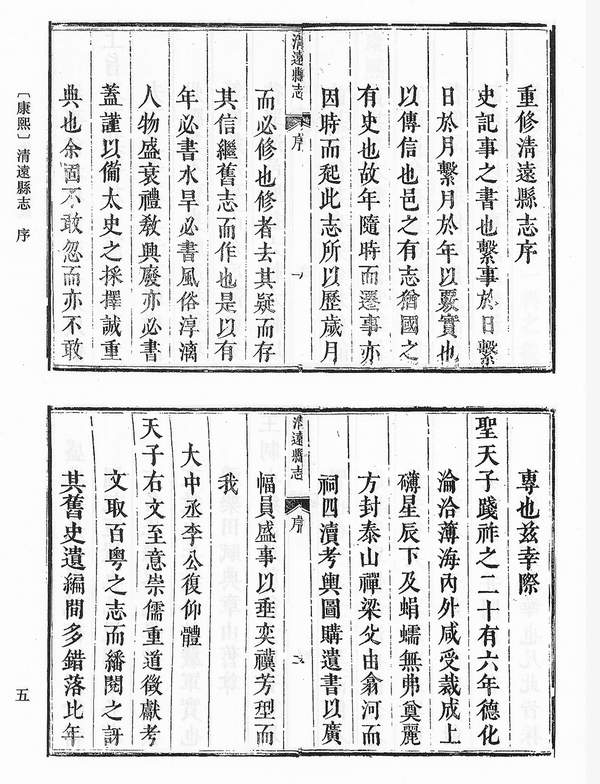 重修清遠縣志序
史記事之書也繫事於日繫
日於月繫月於年以覈實也
以傳信也邑之有志猶國之
有史也故年隨時而遷事亦
因時而起此志所以歷歲月
清遠縣志
序
一
而必修也修者去其疑而存
其信繼舊志而作也是以有
年必書水旱必書風俗淳漓
人物盛衰禮教興廢亦必書
蓋謹以備太史之採擇誠重
典也余固不敢忽而亦不敢
專也茲幸際
聖天子踐祚之二十有六年德化
淪洽薄海內外咸受裁成上
礴星辰下及蜎蠕無弗奠麗
方封泰山禪梁父由翕河而
祠四瀆考輿圖購遺書以廣
清遠縣志
序
二
幅員盛事以垂奕禩芳型而
我
大中丞李公復仰體
天子右文至意崇儒重道徵獻考
文取百粵之志而繙閱之訝
其舊史遺編間多錯落比年
〔康熙〕清遠縣志 序
五